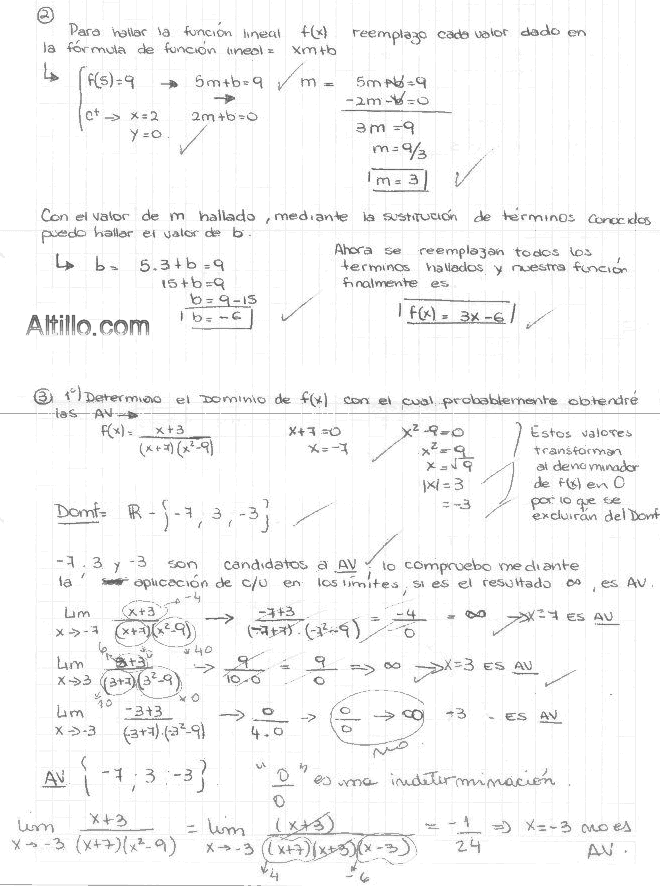 ②
Para hallar la función lineal f(x) reemplazo cada valor dado en
la fórmula de función lineal = xm+b
↳ { f(5)=9 → 5m+b=9 ✓ m = 5m+b=9
→ -2m-b=0
C⁺ → x=2 2m+b=0 3m=9
y=0. ✓ m=9/3
m=3 ✓
Con el valor de m hallado, mediante la sustitución de términos conocidos
puedo hallar el valor de b.
↳ b= 5.3+b=9
15+b=9
b=9-15
b=-6 ✓
Ahora se reemplazan todos los
terminos hallados y nuestra función
finalmente es
f(x) = 3x-6 ✓
Altillo.com
③ 1°) Determino el Dominio de f(x) con el cual probablemente obtendré
las AV →
f(x)= x+3 / (x+7)(x²-9) x+7=0 x²-9=0
x=-7 x²=9
x=√9
|x|=3
=-3
Estos valores
transforman
al denominador
de f(x) en 0
por lo que se
excluirán del Domf
Domf= ℝ - {-7; 3; -3}
-7, 3 y -3 son candidatos a AV y lo compruebo mediante
la aplicación de c/u en los límites, si es el resultado ∞, es AV.
Lim x→-7 (x+3) / (x+7)(x²-9) → -7+3 / (-7+7).(-7²-9) = -4 / 0 = ∞ → x=-7 ES AV
Lim x→3 3+3 / (3+7)(3²-9) → 9 / 10.0 = 9 / 0 ⇒ ∞ → x=3 ES AV
Lim x→-3 -3+3 / (-3+7).(-3²-9) → 0 / 4.0 → 0 / 0 → ∞ -3 - ES AV
NO.
AV {-7; 3; -3}. "0/0" es una indeterminación.
lim x→-3 x+3 / (x+7)(x²-9) = lim x→-3 (x+3) / (x+7)(x+3)(x-3) = -1 / 24 ⇒ x=-3 no es
AV.
4 -6